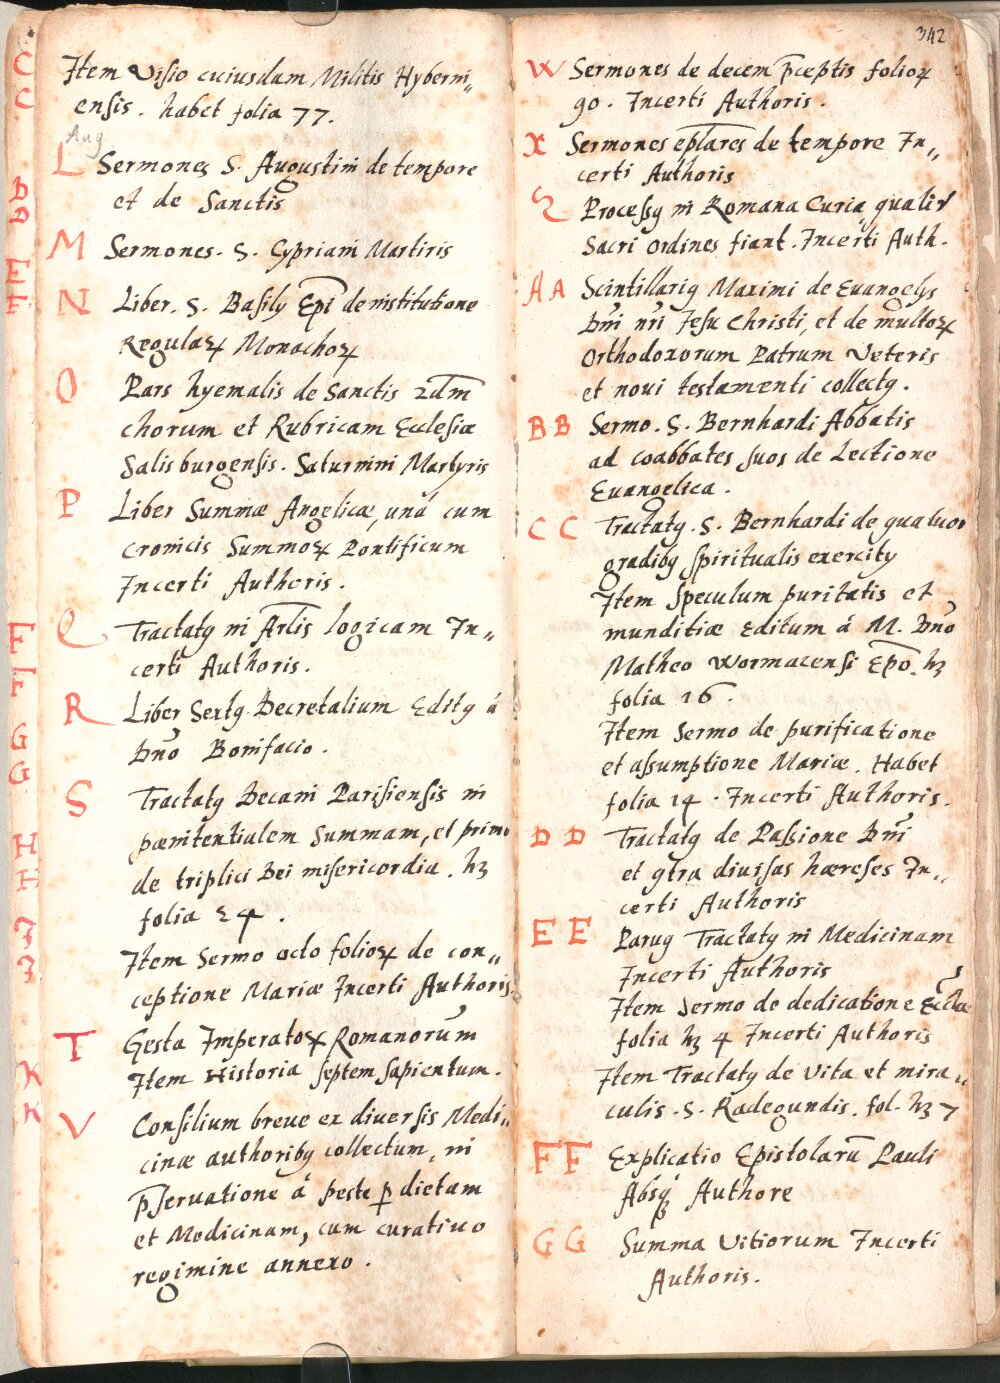 Item Visio cuiusdam Militis Hyberni„
ensis. habet folia 77.
Aug
L Sermones S. Augustini de tempore
et de Sanctis
M Sermones. S. Cypriani Martiris
N Liber. S. Basilij Epi de institutione
Regulaꝝ Monachoꝝ
O Pars hyemalis de Sanctis 2dm
chorum et Rubricam Ecclesiæ
Salisburgensis. Saturnini Martyris
P Liber Summæ Angelicæ, unà cum
cronicis Summoꝝ Pontificum
Incerti Authoris.
Q Tractatꝯ in Artis logicam In„
certi Authoris.
R Liber Sextꝯ Decretalium Editꝯ á
Dno Bonifacio.
S Tractatꝯ Decani Parisiensis in
pænitentialem Summam, et primo
de triplici Dei misericordia. hꝫ
folia 24.
Item Sermo octo folioꝝ de con„
ceptione Mariæ Incerti Authoris
T Gesta Imperatoꝝ Romanorum
Item Historia septem sapientum.
V Consilium breue ex diuersis Medi„
cinæ authoribꝯ collectum, in
p̄seruatione á peste ꝑ dietam
et Medicinam, cum curatiuo
regimine annexo.
C
C
D
D
E
E
F
F
G
G
H
H
I
I
K
K
342
W Sermones de decem p̄ceptis folioꝝ
90. Incerti Authoris.
X Sermones eplares de tempore In„
certi Authoris
Z Processꝯ in Romana Curia, qualir
Sacri Ordines fiant. Incerti Auth.
AA Scintillariꝯ Maximi de Euangelijs
Dni nri Jesu Christi, et de multoꝝ
Orthodoxorum Patrum Veteris
et noui testamenti collectꝯ.
BB Sermo. S. Bernhardi Abbatis
ad coabbates suos de Lectione
Euangelica.
CC Tractatꝯ. S. Bernhardi de quatuor
gradibꝯ spiritualis exercitij
Item Speculum puritatis et
munditiæ Editum á M. Dno
Matheo Wormacensi Epo. hꝫ
folia 16.
Item Sermo de purificatione
et assumptione Mariæ. Habet
folia 14. Incerti Authoris.
DD Tractatꝯ de Passione Dni
et ꝯtra diuisas hæreses In„
certi Authoris
EE Paruꝯ Tractatꝯ in Medicinam
Incerti Authoris
Item Sermo de dedicatione Eccliæ
folia hꝫ 4 Incerti Authoris
Item Tractatꝯ de Vita et mira„
culis. S. Radegundis. fol. hꝫ 7
FF Explicatio Epistolarū Pauli
Absqꝫ Authore
GG Summa Vitiorum Incerti
Authoris.